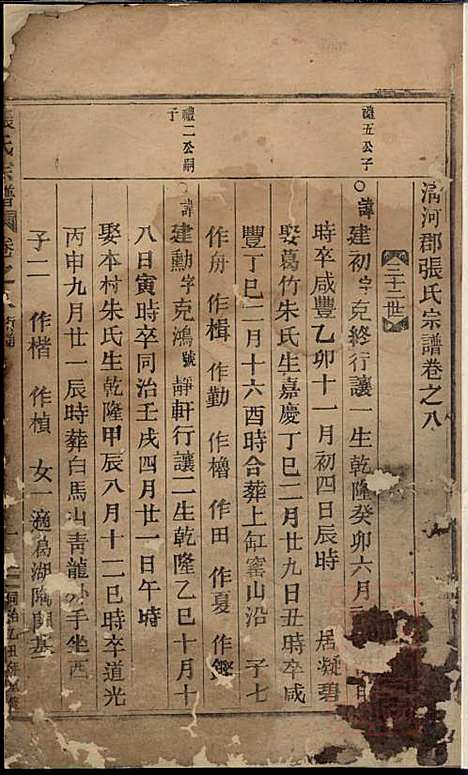 清河郡張氏宗譜卷之八
三十二世
禮五公子
○諱建初字克終行讓一生乾隆癸卯六月
時卒咸豐乙卯十一月初四日辰時 居凝碧
娶葛竹朱氏生嘉慶丁巳二月廿九日丑時卒咸
豐丁巳二月十六酉時合葬上缸窰山沿 子七
作舟 作楫 作勤 作櫓 作田 作夏 作
禮二公嗣子
○諱建勳字克鴻號靜軒行讓二生乾隆乙巳十月十
八日寅時卒同治壬戌四月廿一日午時
娶本村朱氏生乾隆甲辰八月十二巳時卒道光
丙申九月廿一辰時葬白馬山青龍 手坐西
子二 作楷 作楨 女一適葛湖
張氏宗譜 卷之八
同治乙丑年